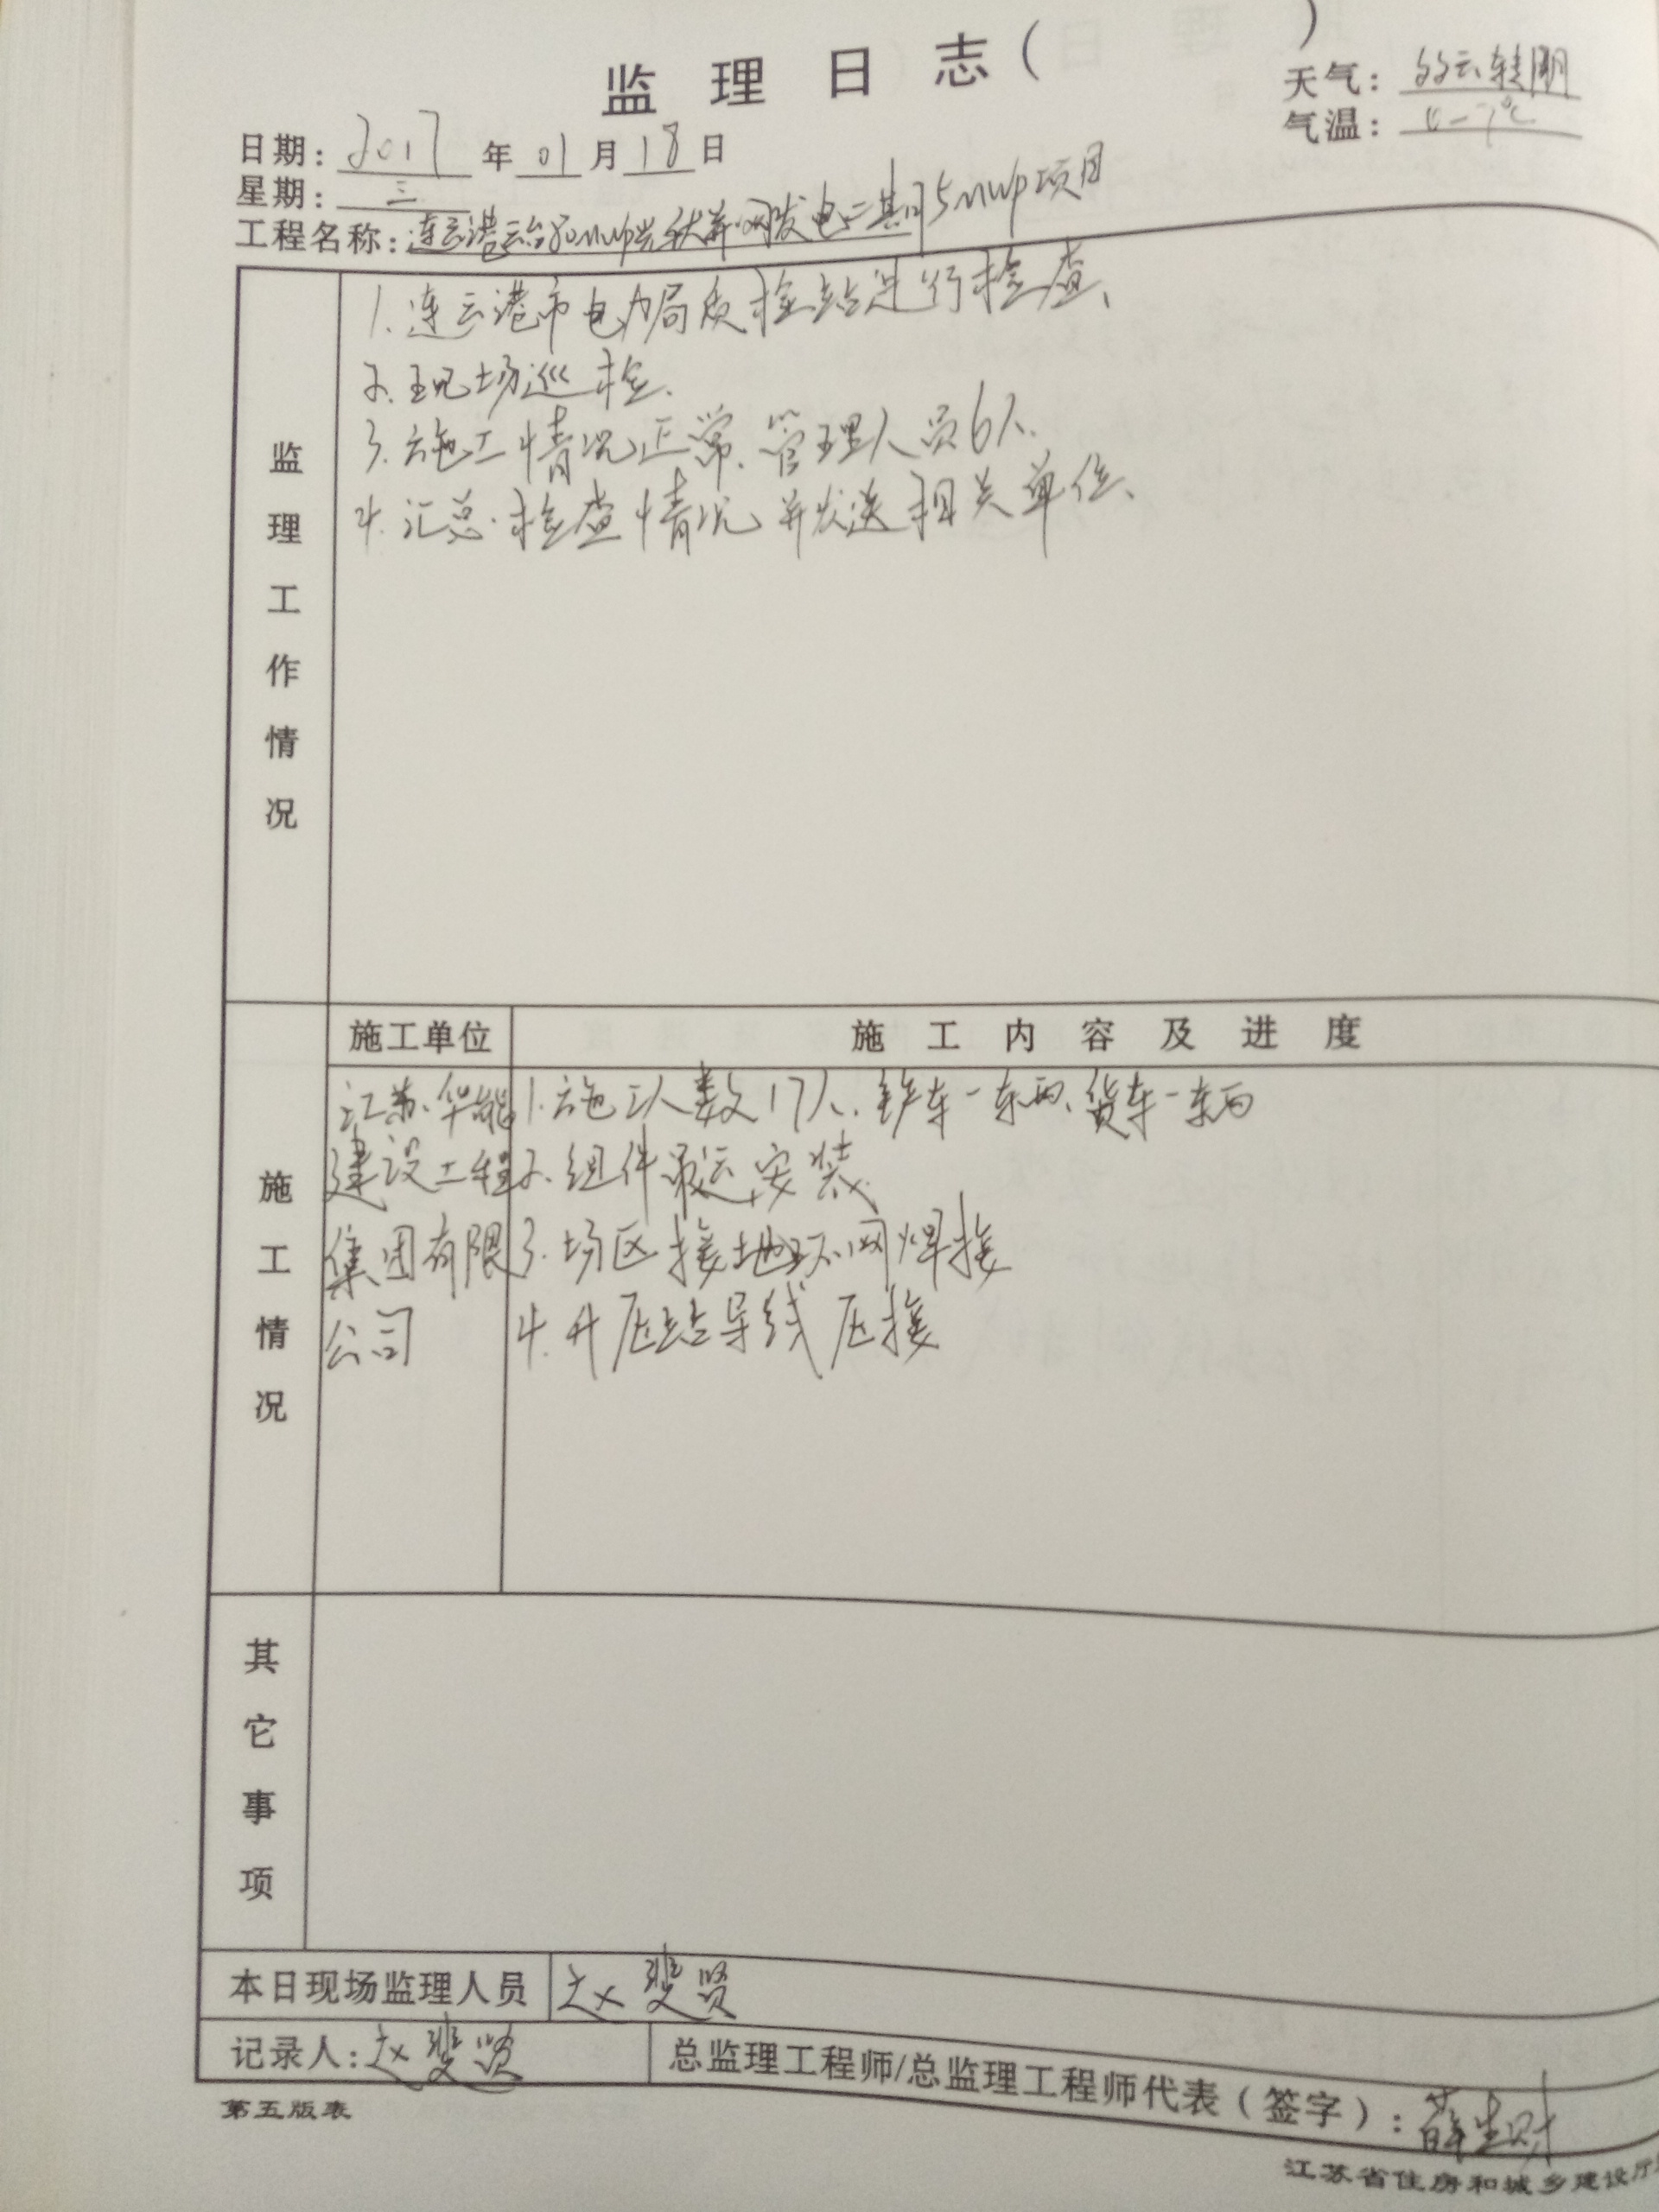 监理日志( )
天气: 多云转阴
气温: 0-7℃
日期: 2017 年 01 月 18 日
星期: 三
工程名称: 连云港云台80MWp光伏并网发电二期75MWp项目
监理工作情况
1. 连云港市电力局质检站进行检查、
2. 现场巡检.
3. 施工情况正常、管理人员6人.
4. 汇总.检查情况并发送相关单位、
施工情况
施工单位 施工内容及进度
江苏华能 1. 施工人数17人. 铲车一车辆、货车一车辆
建设工程 2. 组件搬运安装.
集团有限 3. 场区接地环网焊接
公司 4. 升压站导线压接
其它事项
本日现场监理人员 赵斐贤
记录人: 赵斐贤 总监理工程师/总监理工程师代表(签字): 薛生财
第五版表
江苏省住房和城乡建设厅